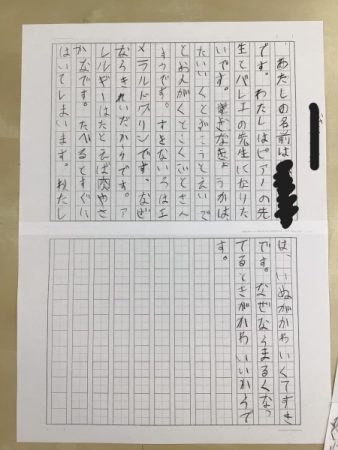 わたしの名前は
です。わたしはピアノの先
生とバレエの先生になりた
いです。すきなきょうかは、
たいいくとずこうとえいご
とおんがくとこくごとさん
すうです。すきないろはエ
メラルドグリンです。なぜ
ならきれいだからです。ア
レルギーはたとえば肉やさ
かなです。たべるとすぐに
はいてしまいます。わたし
は、いぬがかわいくてすき
です。なぜならまるくなっ
てるときがかわいいからで
す。